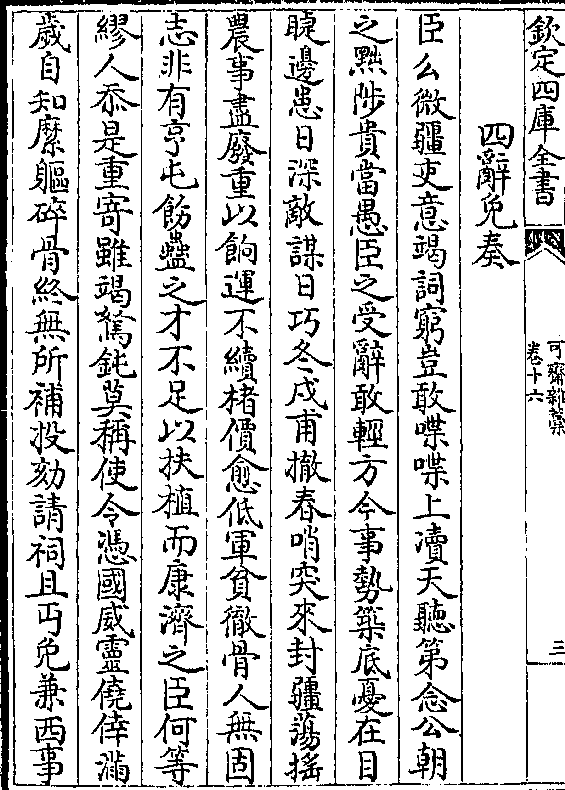 欽定四庫全書
可齋雜藁
卷十六
三
四辭免奏
臣么微疆吏意竭詞窮豈敢喋喋上瀆天聽第念公朝
之黜陟貴當愚臣之受辭敢輕方今事勢築底憂在目
睫邊患日深敵謀日巧冬戍甫撤春哨突來封疆蕩搖
農事盡廢重以餉運不續楮價愈低軍貧徹骨人無固
志非有亨屯飭蠱之才不足以扶植而康濟之臣何等
繆人忝是重寄雖竭駑鈍莫稱使令憑國威靈僥倖滿
歲自知糜軀碎骨終無所補投劾請祠且丐免兼西事